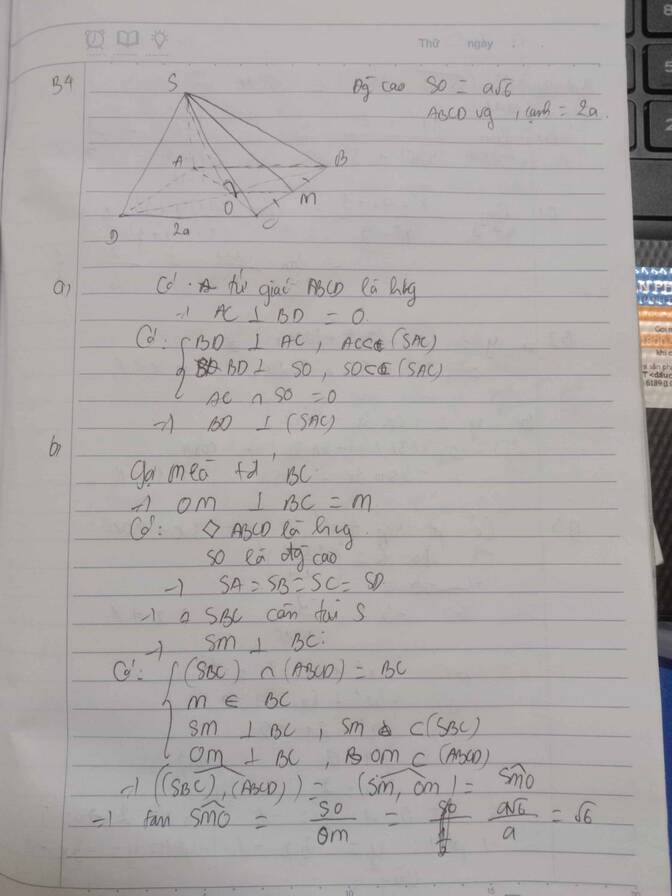 Thứ ngày
B4
S
Đg cao SO = a√6
ABCD vg, cạnh = 2a.
A
B
M
O
C
D
2a
a,
Có tứ giác ABCD là hvg
→ AC ⊥ BD = O.
Có: { BD ⊥ AC, AC ⊂ (SAC)
BD ⊥ SO, SO ⊂ (SAC)
AC ∩ SO = O
→ BD ⊥ (SAC)
b,
Gọi M là tđ BC
→ OM ⊥ BC = M
Có: ◇ ABCD là hvg.
SO là đg cao
→ SA = SB = SC = SD
→ △ SBC cân tại S
→ SM ⊥ BC.
Có: { (SBC) ∩ (ABCD) = BC
M ∈ BC
SM ⊥ BC, SM ⊂ (SBC)
OM ⊥ BC, OM ⊂ (ABCD)
→ ((SBC), (ABCD)) = (SM, OM) = SMO
→ tan SMO = SO/OM = a√6/a = √6
10
15
20